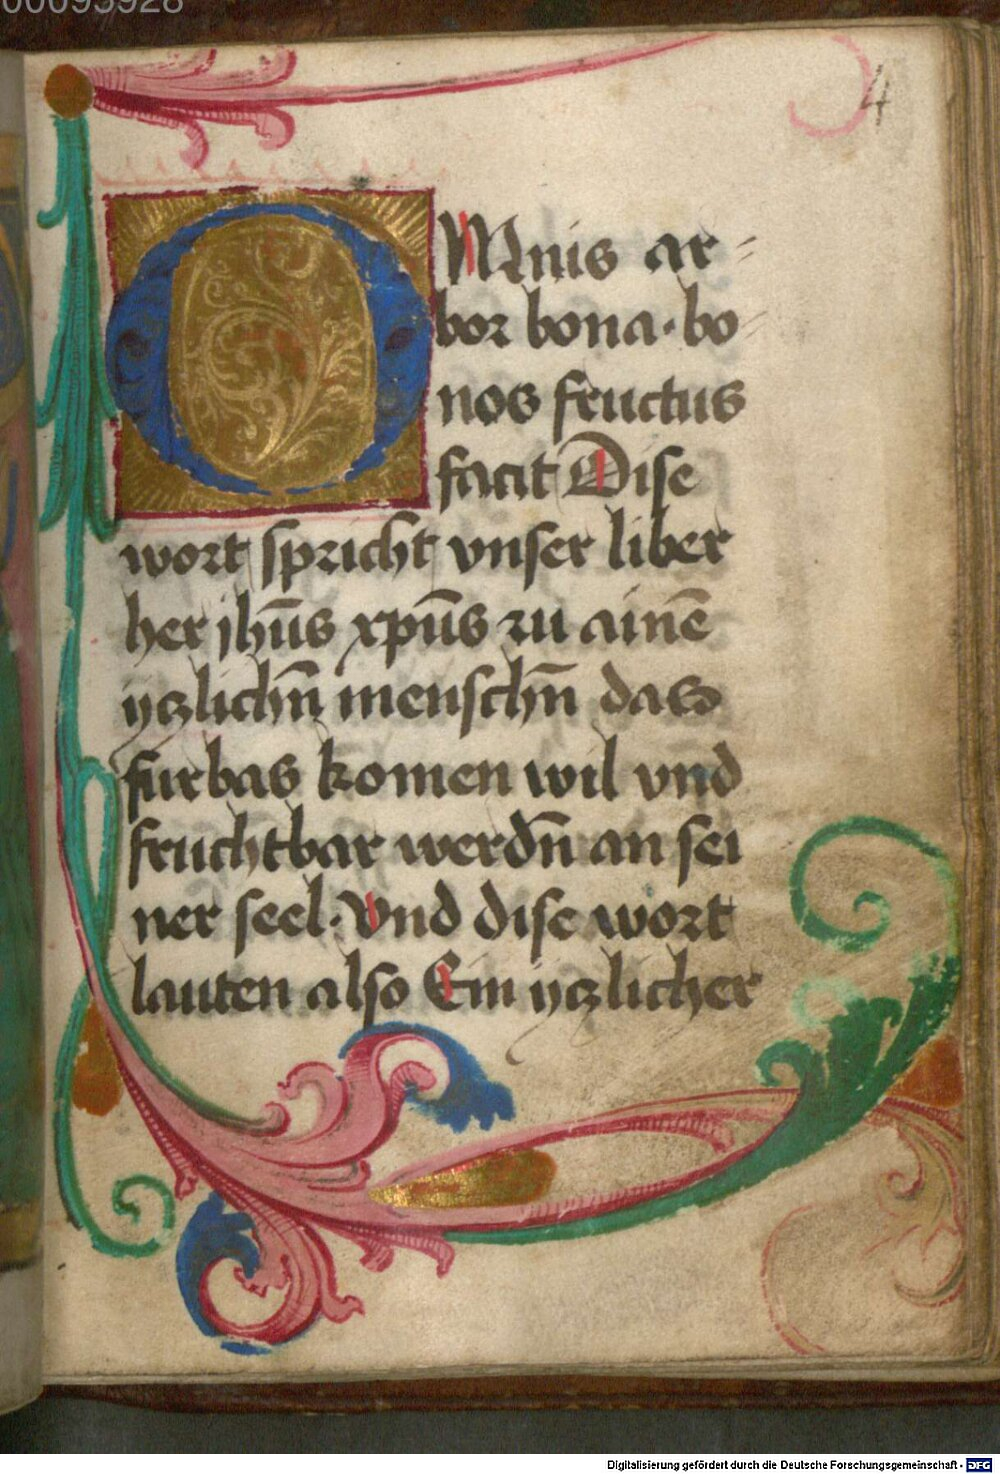 00093928
4
OMnis ar-
bor bona · bo-
nos fructus
facit Dise
wort spricht vnser liber
her jhūs xpūs zu ainē
yczlichn̄ menschn̄ das
furbas komen wil vnd
fruchtbar werdn̄ an sei
ner seel · Vnd dise wort
lauten also Ein yczlicher
Digitalisierung gefördert durch die Deutsche Forschungsgemeinschaft - DFG